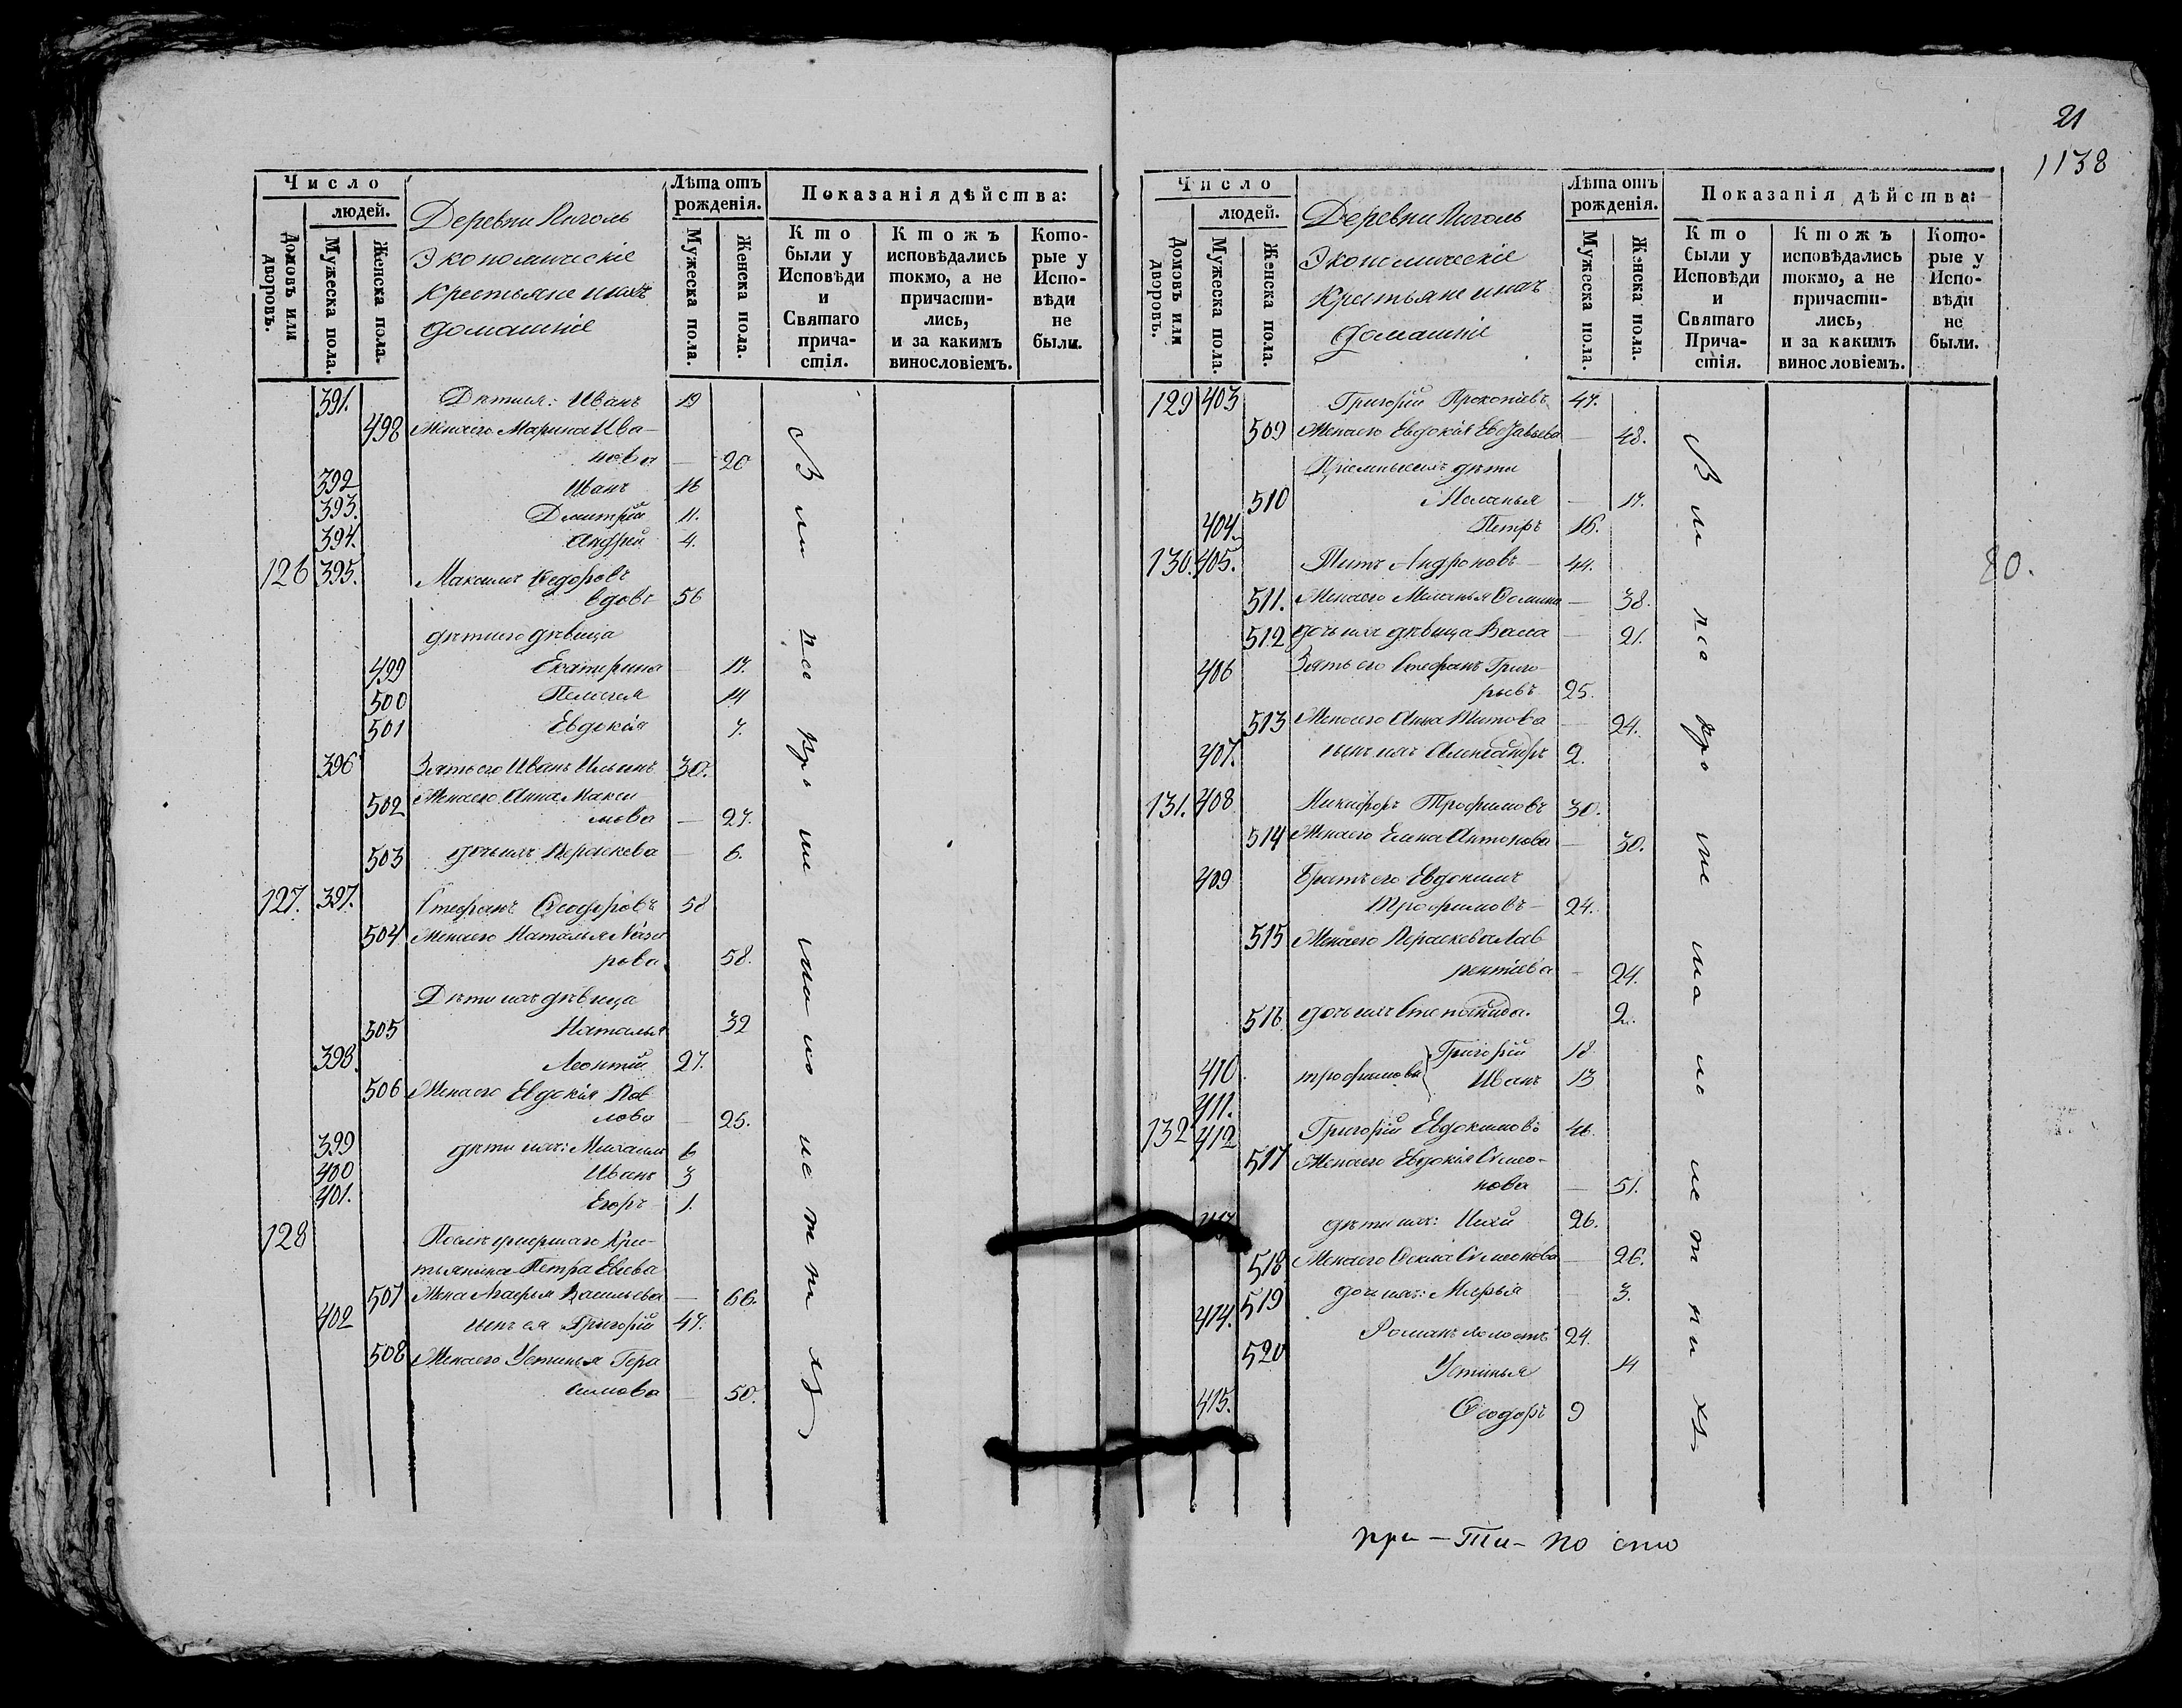 Число
людей.
Домовъ или дворовъ.
Мужеска пола.
Женска пола.
Деревни
Экономическіе
Крестьяне и ихъ
домашніе
Лѣта отъ рожденія.
Мужеска пола.
Женска пола.
Показанія дѣйства:
Кто были у Исповѣди и Святаго прича-стія.
Ктожъ исповѣдались токмо, а не причасти-лись, и за какимъ винословіемъ.
Кото-рые у Испо-вѣди не были.
391. Дети его: Иванъ 19
498 Жена его Марина Ива-
нова — 20
392 Иванъ 16
393. Дмитрій 11.
394. Андрей 4.
126 395. Максимъ Федоровъ
вдовъ 56
дети его девица
499 Екатерина — 17.
500 Пелагея 14
501 Евдокія 7.
396 Зять его Иванъ Ильинъ 30.
502 Жена его Анна Макси-
мова — 27.
503 дочь ихъ Параскева — 6.
127. 397. Стефанъ Феодоровъ 58
504 Жена его Наталья
рова 58.
Дети ихъ девица
505 Наталья 32
398. Леонтій 27.
506 Жена его Евдокія Пав
лова — 25.
399 дети ихъ: Михаилъ 6
400 Иванъ 3
401. Егоръ 1.
128 После умершаго Крес-
тьянина Петра
507 Жена Агафья Васильева — 66.
402 сынъ ея Григорій 47.
508 Жена его Устинья Гера
симова — 50.
В ли по при ша ю
21
1138
Число
людей.
Домовъ или дворовъ.
Мужеска пола.
Женска пола.
Деревни
Экономическіе
Крестьяне и ихъ
домашніе
Лѣта отъ рожденія.
Мужеска пола.
Женска пола.
Показанія дѣйства:
Кто были у Исповѣди и Святаго Прича-стія.
Ктожъ исповѣдались токмо, а не причасти-лись, и за какимъ винословіемъ.
Кото-рые у Испо-вѣди не были.
129 403 Григорій Прокопіевъ 47.
509 Жена его Евдокія — 48.
дети
510 Маланья — 17.
404. Петръ 16.
130. 405. Титъ Андроновъ — 44.
511. Жена его Маланья Фомина — 38.
512 дочь ихъ девица Васса — 21.
406 Зять его Стефанъ Григо-
рьевъ 25.
513 Жена его Анна Титова — 24.
407. сынъ ихъ Александръ 2.
131. 408 Никифоръ Трофимовъ 30.
514 Жена его Елена Антонова — 30.
409 Братъ его Евдокимъ
Трофимовъ — 24.
515 Жена его Параскева Лав
рентіева — 24.
516 дочь ихъ Степанида. 2.
410 Трофимовы Григорій 18
411. Иванъ 13
132 412 Григорій Евдокимовъ 46.
517 Жена его Евдокія Симео-
нова — 51.
413 дети ихъ: 26.
518 Жена его Фекла Симеонова — 26.
519 дочь ихъ: Марья — 3.
414. Романъ холостъ 24.
520 Устинья 14
415. Феодоръ 9
80.
при — Ти — по сто